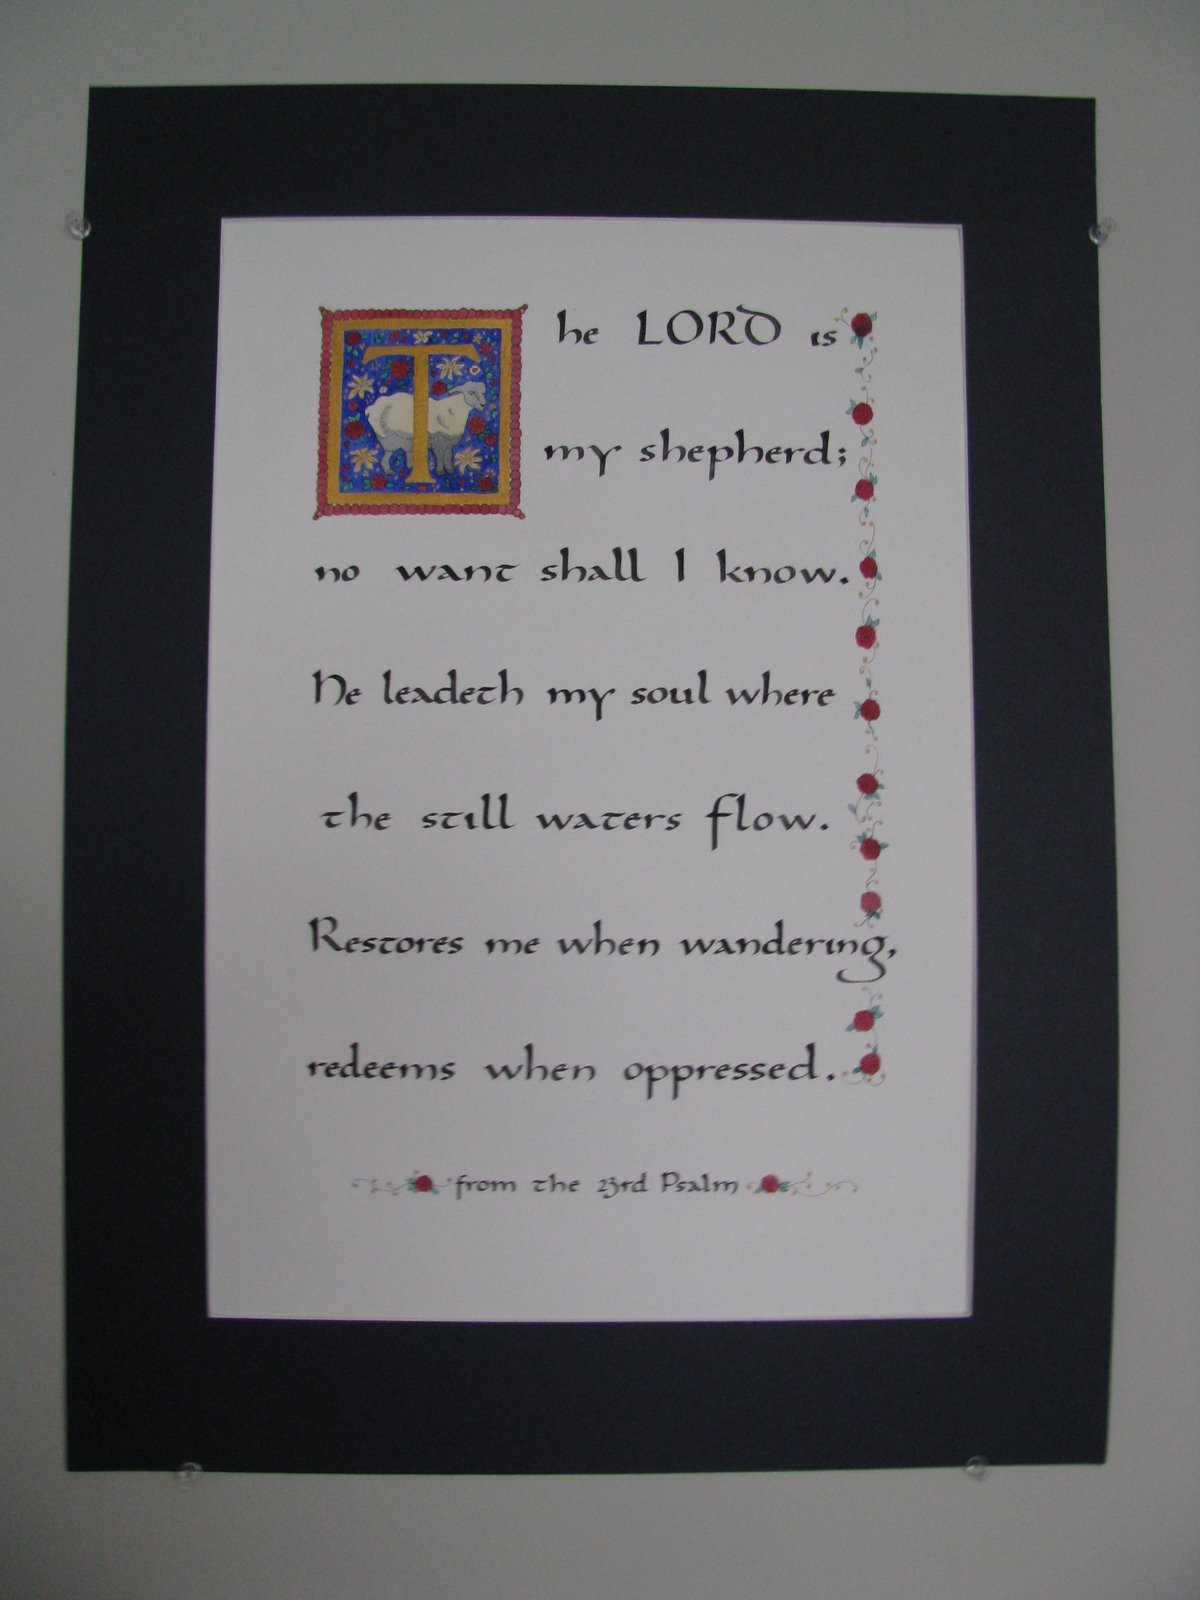 The LORD is
my shepherd;
no want shall I know.
He leadeth my soul where
the still waters flow.
Restores me when wandering,
redeems when oppressed.
from the 23rd Psalm